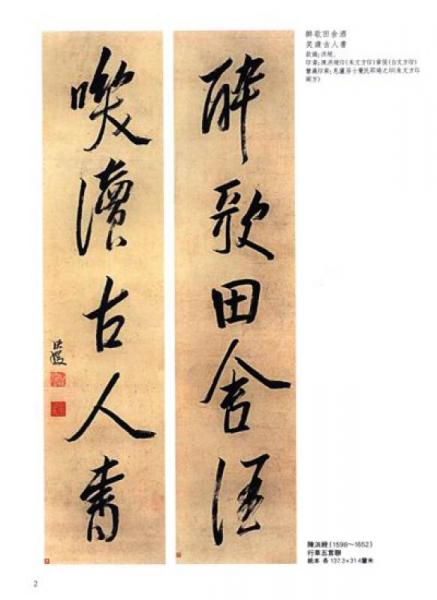 醉歌田舍酒
笑讀古人書
洪綬
醉歌田舍酒
笑讀古人書
款識:洪綬。
印章:陳洪綬印(朱文方印)章侯(白文方印)
陳洪綬(1598～1652)
行草五言聯
紙本 各 137.3×31.4釐米
2